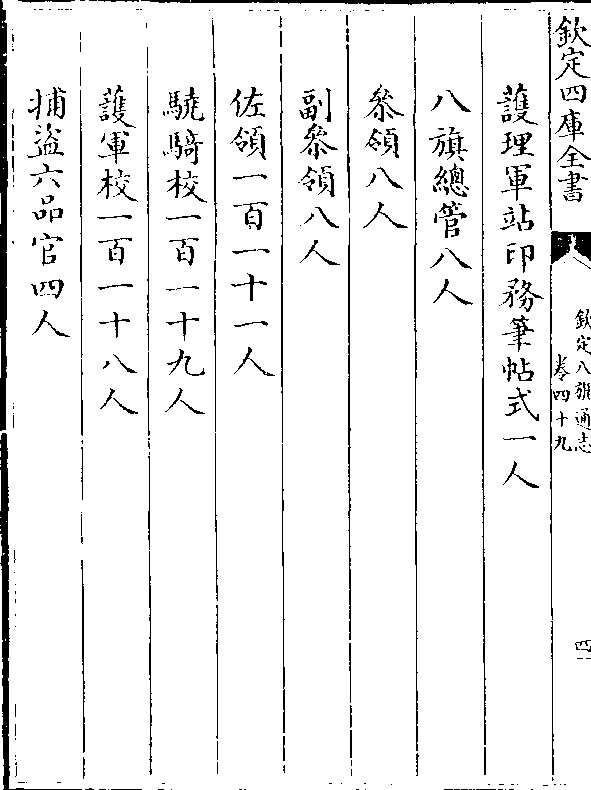 欽定四庫全書
欽定八旗通志
卷四十九
四
護理軍站印務筆帖式一人
八旗總管八人
叅領八人
副叅領八人
佐領一百一十一人
驍騎校一百一十九人
護軍校一百一十八人
捕盗六品官四人